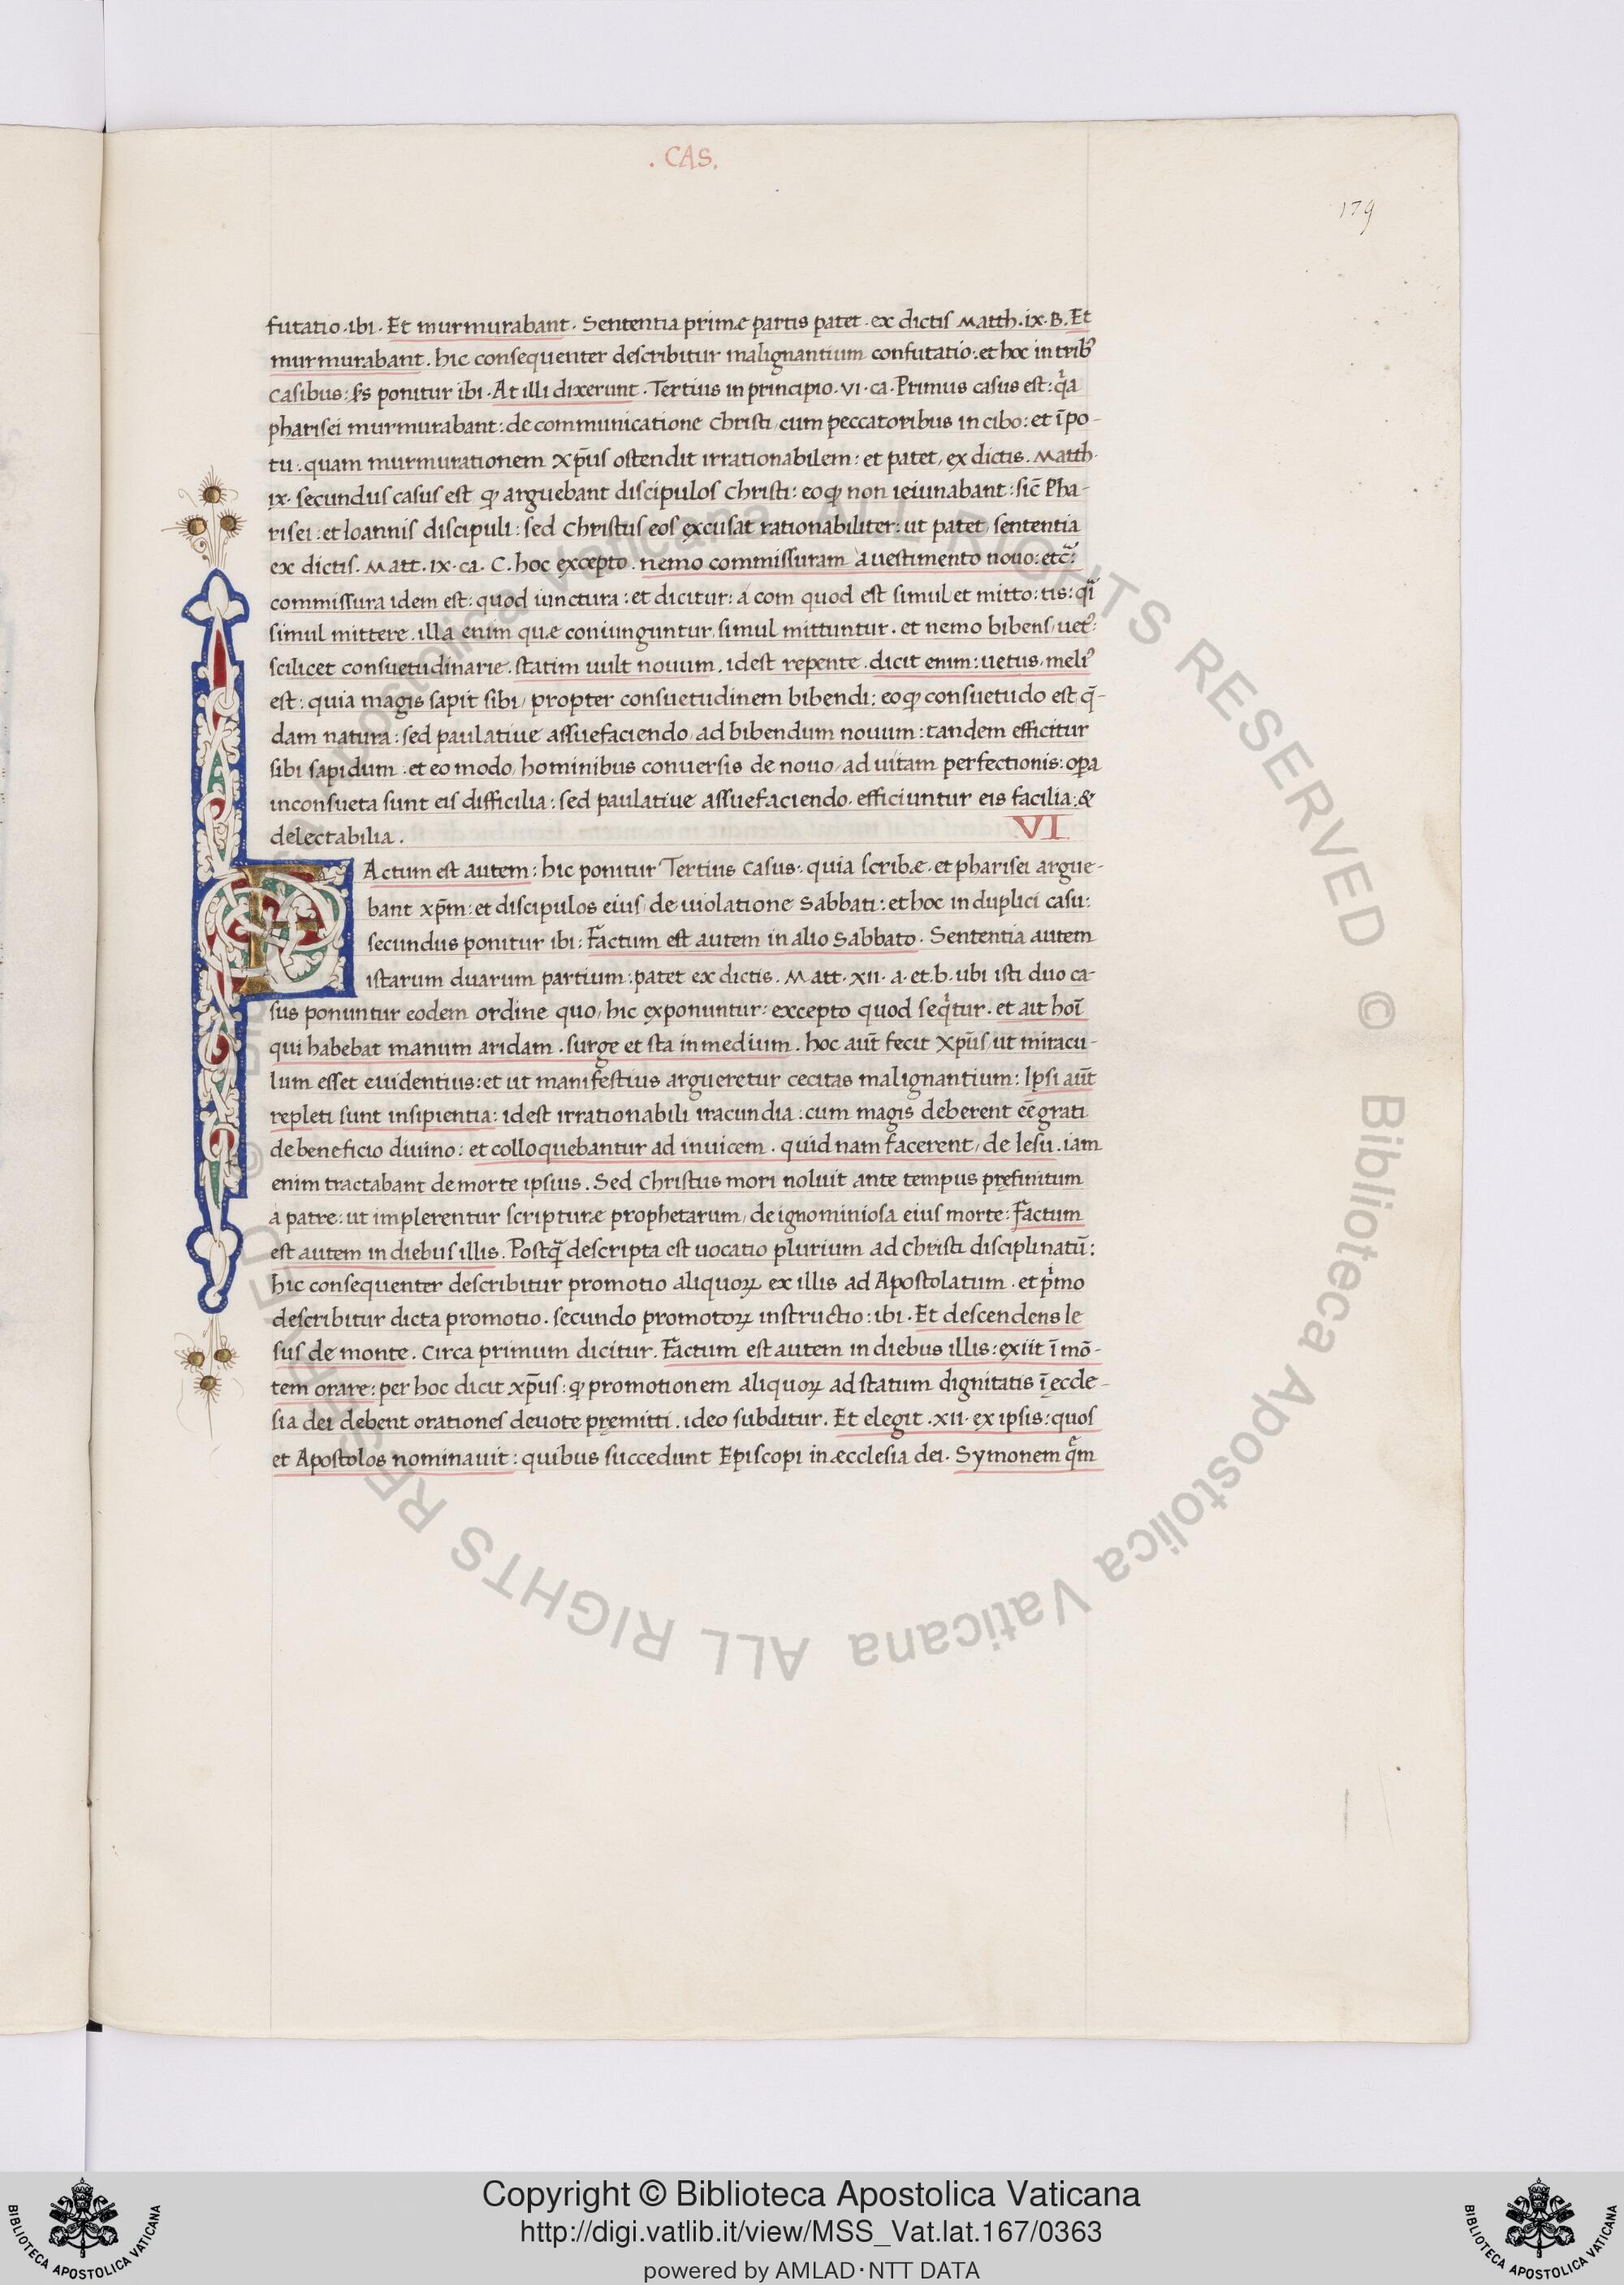 . CAS.
179
futatio. ibi. Et murmurabant. Sententia primæ partis patet. ex dictis Matth. ix. B. Et
murmurabant. hic consequenter describitur malignantium confutatio: et hoc in tribꝰ
casibus: s̄s ponitur ibi. At illi dixerunt. Tertius in principio. vi. ca. Primus casus est: qͥa
pharisei murmurabant: de communicatione christi, cum peccatoribus in cibo: et ī po-
tu: quam murmurationem xp̄us ostendit irrationabilem: et patet, ex dictis. Matth.
ix. secundus casus est ꝙ arguebant discipulos christi: eoꝙ non ieiunabant: sic̄ Pha-
risei: et Ioannis discipuli: sed christus eos excusat rationabiliter: ut patet, sententia
ex dictis. Matt. ix. ca. C. hoc excepto. nemo commissuram à uestimento nouo: etc̃:
commissura idem est: quod iunctura: et dicitur: á com quod est simul et mitto: tis: qᵃi
simul mittere. illa enim quæ coniunguntur, simul mittuntur. et nemo bibens, uetꝰ:
scilicet consuetudinarie. statim uult nouum. idest repente. dicit enim: uetus, meliꝰ
est: quia magis sapit sibi, propter consuetudinem bibendi: eoꝙ consuetudo est, q̄-
dam natura: sed paulatiue assuefaciendo, ad bibendum nouum: tandem efficitur
sibi sapidum. et eo modo, hominibus conuersis de nouo, ad uitam perfectionis: oꝑa
inconsueta sunt eis difficilia: sed paulatiue assuefaciendo. efficiuntur eis facilia: &
delectabilia.
VI
FActum est autem: hic ponitur Tertius casus. quia scribæ. et pharisei argue-
bant xp̄m: et discipulos eius, de uiolatione Sabbati: et hoc in duplici casu:
secundus ponitur ibi: Factum est autem in alio Sabbato. Sententia autem
istarum duarum partium: patet ex dictis. Matt. xii. a. et. b. ubi isti duo ca-
sus ponuntur eodem ordine quo, hic exponuntur: excepto quod seqͥtur. et ait hoi̅
qui habebat manum aridam. surge et sta in medium. hoc aut̄ fecit xp̄us, ut miracu-
lum esset euidentius: et ut manifestius argueretur cecitas malignantium: Ipsi aut̄
repleti sunt insipientia: idest irrationabili iracundia: cum magis deberent ee̅ grati
de beneficio diuino: et colloquebantur ad inuicem. quid nam facerent, de Iesu. iam
enim tractabant de morte ipsius. Sed christus mori noluit ante tempus pręfinitum
à patre: ut implerentur scripturæ prophetarum, de ignominiosa eius morte: Factum
est autem in diebus illis. Postq̄ descripta est uocatio plurium ad christi disciplinatū:
hic consequenter describitur promotio aliquoꝝ ex illis ad Apostolatum. et pͥmo
describitur dicta promotio. secundo promotoꝝ instructio: ibi. Et descendens Ie
sus de monte. circa primum dicitur. Factum est autem in diebus illis: exiit ī mō-
tem orare: per hoc dicit xp̄us: ꝙ promotionem aliquoꝝ ad statum dignitatis ī eccle-
sia dei debent orationes deuote pręmitti. ideo subditur. Et elegit. xii. ex ipsis: quos
et Apostolos nominauit: quibus succedunt Episcopi in æcclesia dei. Symonem qᵃm
© Biblioteca Apostolica Vaticana ALL RIGHTS RESERVED © Biblioteca Apostolica Vaticana ALL RIGHTS RESERVED
Copyright © Biblioteca Apostolica Vaticana
http://digi.vatlib.it/view/MSS_Vat.lat.167/0363
powered by AMLAD·NTT DATA
BIBLIOTECA APOSTOLICA VATICANA
BIBLIOTECA APOSTOLICA VATICANA